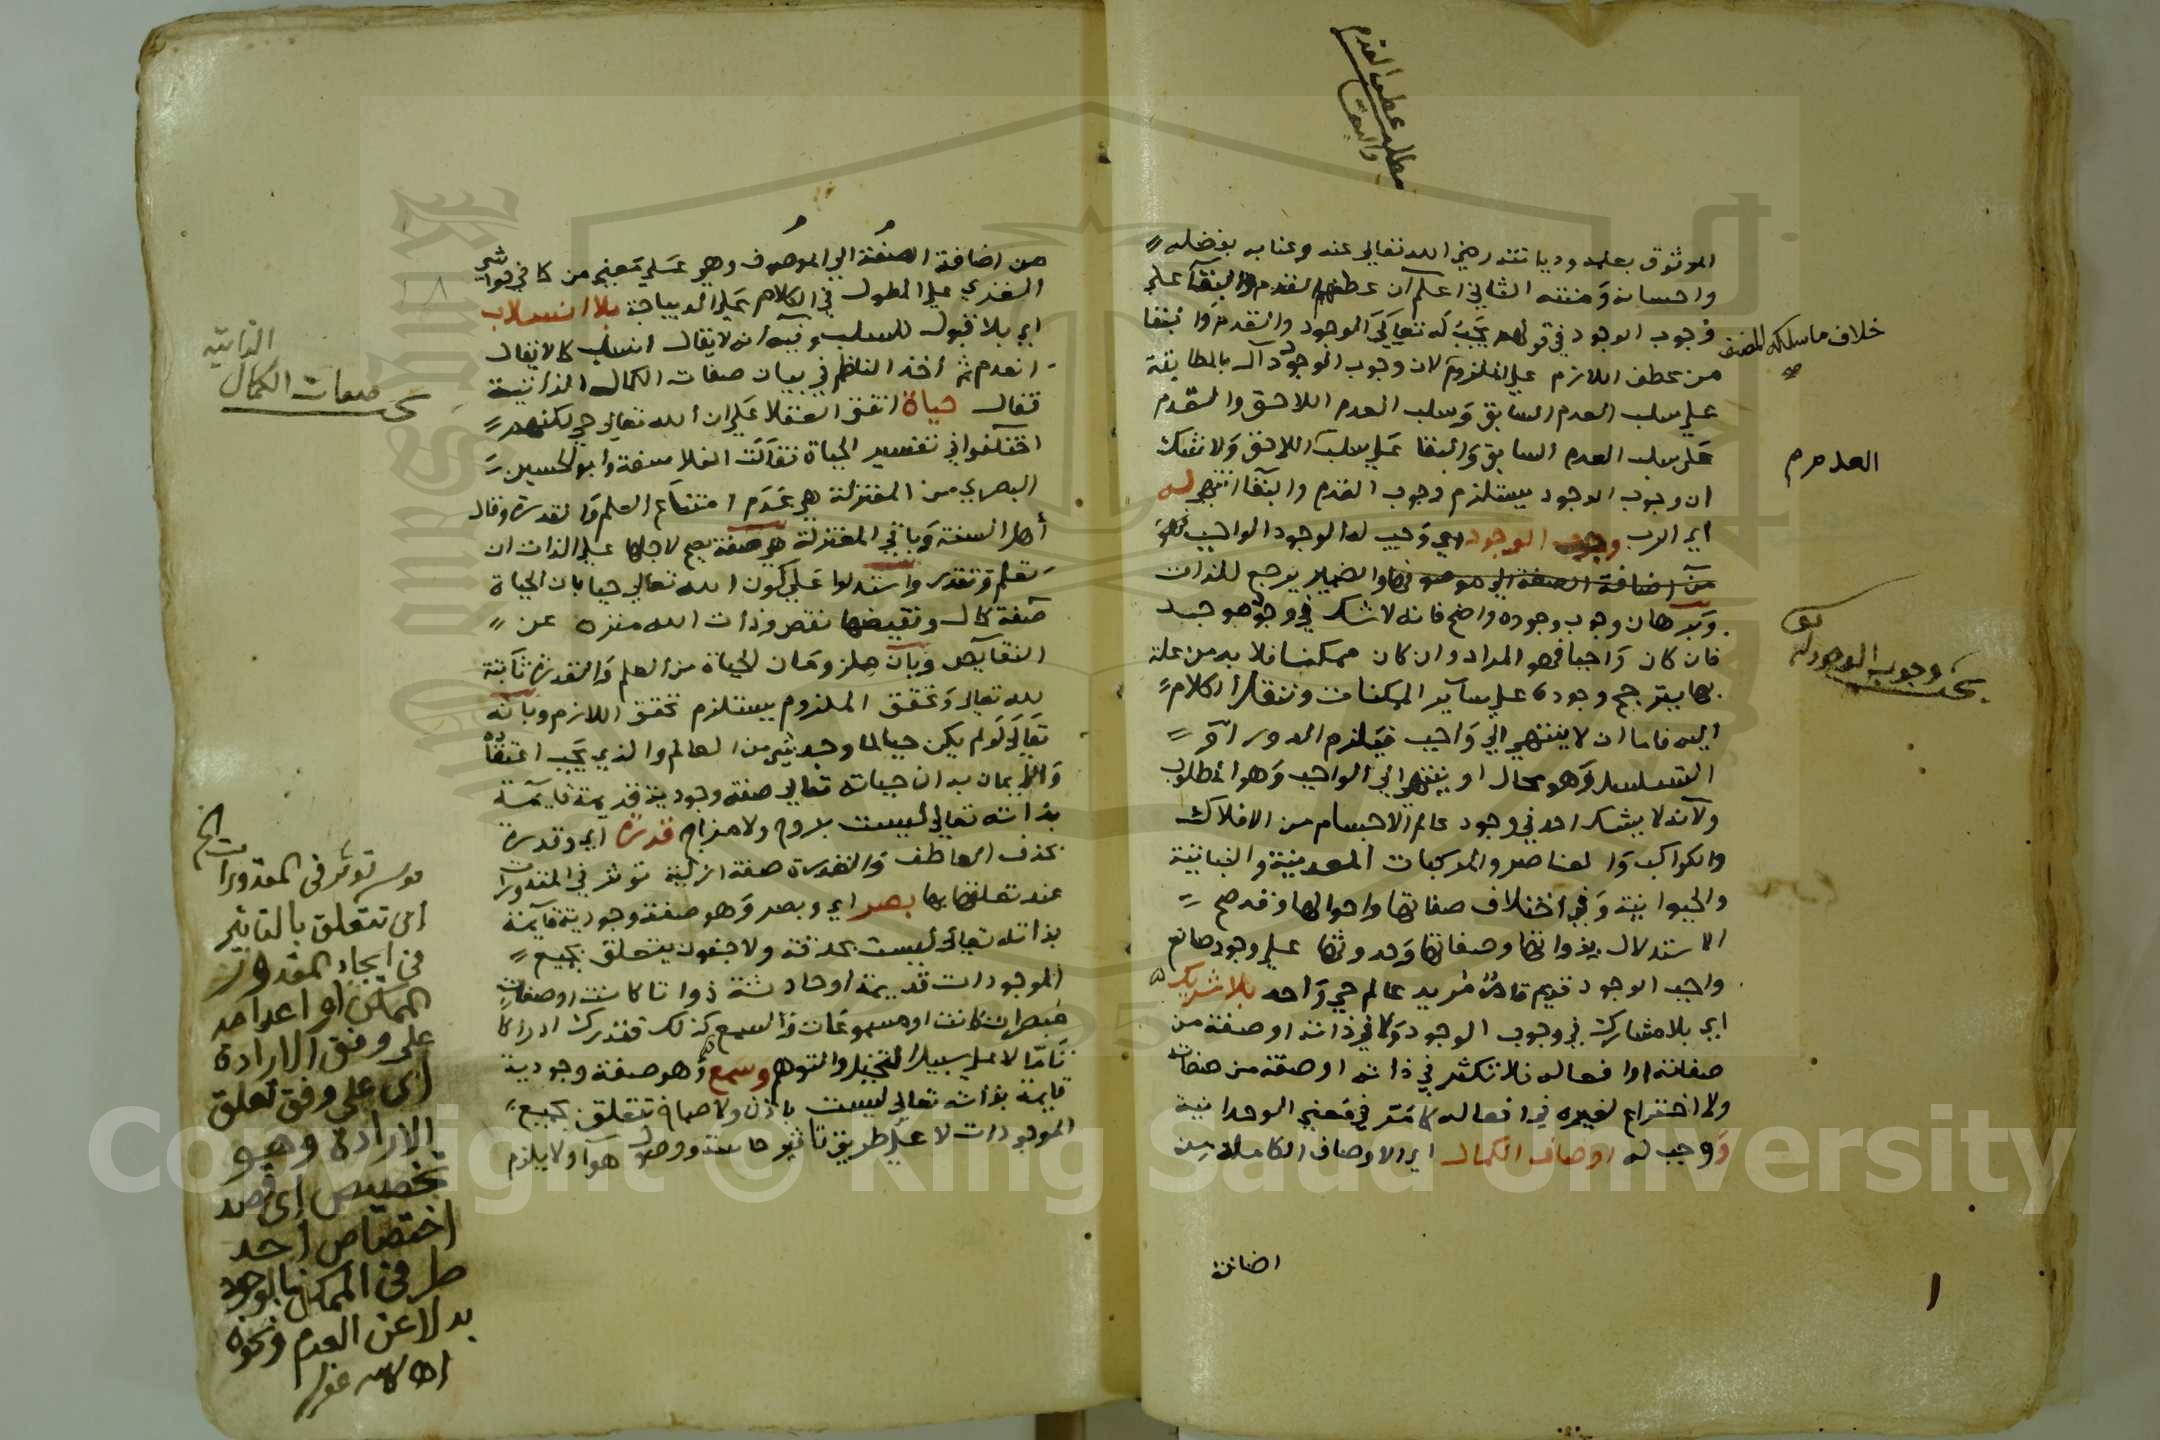 مطلب عطف القدم
والبقا
الموثوق بعلمه وديانته رضي الله تعالى عنه وعنا به بفضله
واحسانه ومنته الثاني اعلم ان عطفهم القدم والبقآ علي
وجوب الوجود في قولهم يجب له تعالى الوجود والقدم والبقا
خلاف ما سلكه المصنف
من عطف اللازم علي الملزوم لان وجوب الوجود دال بالمطابقة
علي سلب العدم السابق وسلب العدم اللاحق والقدم
علي سلب العدم السابق والبقا علي سلب اللاحق ولا شك
العدم
ان وجوب الوجود يستلزم وجوب القدم والبقآ انتهي له
اي الرب وجوب الوجود اي وجب له الوجود الواجب فهو
من اضافة الصفة الي موصوفها والضمير يرجع للذات
وبرهان وجوب وجوده واضح فانه لا شك في وجود موجد
فان كان واجبا فهو المراد وان كان ممكنا فلا بد من علة
وجوب الوجود له
بها يترجح وجوده علي ساير الممكنات وننقل الكلام
اليه فاما ان لا ينتهي الي واجب فيلزم الدور او
التسلسل وهو محال او ينتهي الي الواجب وهو المطلوب
ولانه لا يشك احد في وجود عالم الاجسام من الافلاك
والكواكب والعناصر والمركبات المعدنية والنباتية
والحيوانية وفي اختلاف صفاتها واحوالها وقد صح
الاستدلال بذواتها وصفاتها وحدوثها علي وجود صانع
واجب الوجود قديم قادر مريد عالم حي واحد بلا شريك
اي بلا مشارك في وجوب الوجود ولا في ذاته او صفة من
صفاته او افعاله فلا تكثر في ذاته او صفة من صفاته
ولا اختراع لغيره في افعاله كما مر في معني الوحدانية
ووجب له اوصاف الكمال اي الاوصاف الكاملة من
اضافة
١
من اضافة الصفة الي الموصوف وهو علي معني من كما في حواشي
الفنري علي المطول في الكلام علي الديباجة بلا انسلاب
اي بلا قبول للسلب وفيه انه لا يقال انسلب كما لا يقال
انعدم ثم اخذ الناظم في بيان صفات الكمال الذاتية
الذاتية
صفات الكمال
فقال حياة اتفق العقلا علي ان الله تعالى حي لكنهم
اختلفوا في تفسير الحياة فقالت الفلاسفة وابو الحسين
البصري من المعتزلة هي عدم امتناع العلم والقدرة وقال
أهل السنة وباقي المعتزلة هي صفة يصح لاجلها علي الذات ان
تعلم وتقدر واستدلوا علي كون الله تعالى حيا بان الحياة
صفة كمال ونقيضها نقص وذات الله منزه عن
النقايص وبان ملزومات الحياة من العلم والقدرة ثابتة
لله تعالى وتحقق الملزوم يستلزم تحقق اللازم وبانه
تعالى لو لم يكن حيا لما وجد شي من العالم والذي يجب اعتقاده
والايمان به ان حياته تعالي صفة وجودية قديمة قايمة
بذاته تعالى ليست بروح ولا مزاج قدرة اي وقدرة
بحذف العاطف والقدرة صفة ازلية توثر في المقدورات
عند تعلقها بها بصر اي وبصر وهو صفة وجودية قايمة
بذاته تعالى ليست بحدقة ولا جفون يتعلق بجميع
الموجودات قديمة او حادثة ذواتا كانت او صفات
مبصرات كانت او مسموعات والسمع كذلك فتدرك ادراكا
تاما لا علي سبيل التخيل والتوهم وسمع وهو صفة وجودية
قايمة بذاته تعالى ليست باذن ولا صماخ تتعلق بجميع
الموجودات لا علي طريق تاثير حاسة ووصول هوآ ولا يلزم
توثر في المقدورات الخ
اي تتعلق بالتاثير
في ايجاد المقدور
الممكن او اعدامه
علي وفق الارادة
اي علي وفق تعلق
الارادة وهو
تخصيص اي قصد
اختصاص احد
طرفي الممكن بالوجود
بدلا عن العدم ونحوه